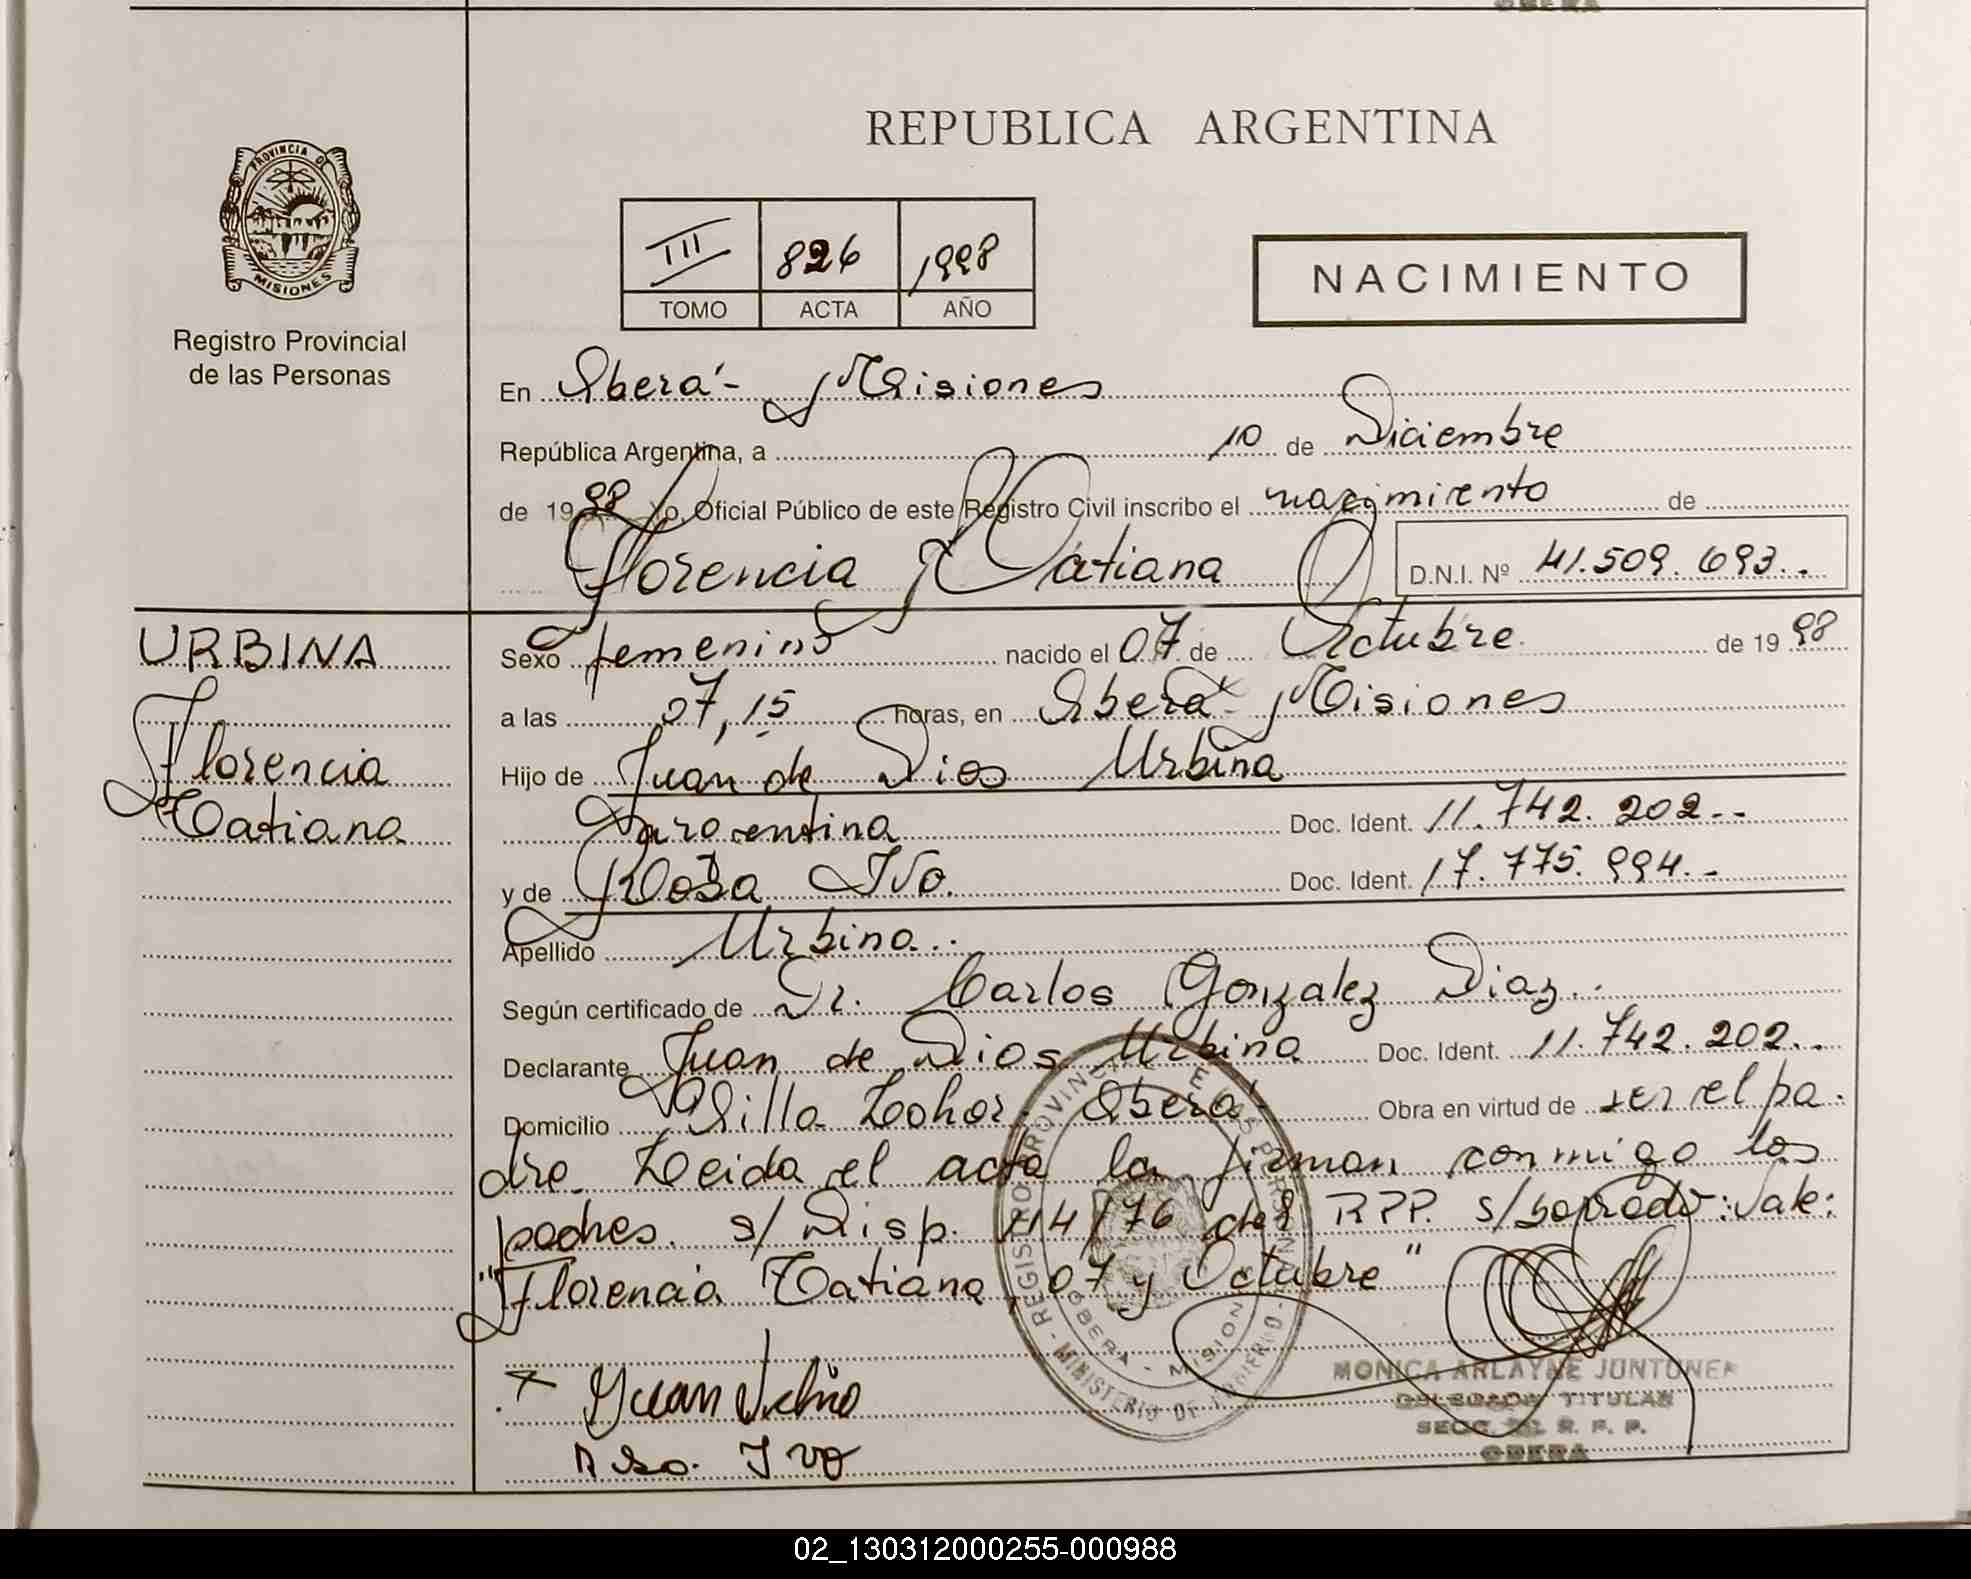 OBERA
REPUBLICA ARGENTINA
PROVINCIA DE
MISIONES
Registro Provincial
de las Personas
III 826 1998
TOMO ACTA AÑO
NACIMIENTO
En Oberá - Misiones
República Argentina, a 10 de Diciembre
de 1998 Yo, Oficial Público de este Registro Civil inscribo el nacimiento de
Florencia Tatiana
D.N.I. Nº 41.509.693..
URBINA
Florencia
Tatiana
Sexo femenino nacido el 07 de Octubre de 1998
a las 07,15 horas, en Oberá - Misiones
Hijo de Juan de Dios Urbina
Argentina Doc. Ident. 11.742.202..
y de Rosa Ivo. Doc. Ident. 17.775.994.-
Apellido Urbina..
Según certificado de Dr. Carlos Gonzalez Diaz..
Declarante Juan de Dios Urbina Doc. Ident. 11.742.202..
Domicilio Villa Oberá Obra en virtud de ser el pa.
dre. Leida el acta la firman conmigo los
padres. s/Disp. 114/76 del R.P.P. s/borrado: Vale:
"Florencia Tatiana, 07 y Octubre"
Juan
Ivo
MONICA ARLAYNE JUNTUNEN
DELEGADA TITULAR
SECC. R. P. P.
OBERA
02_130312000255-000988